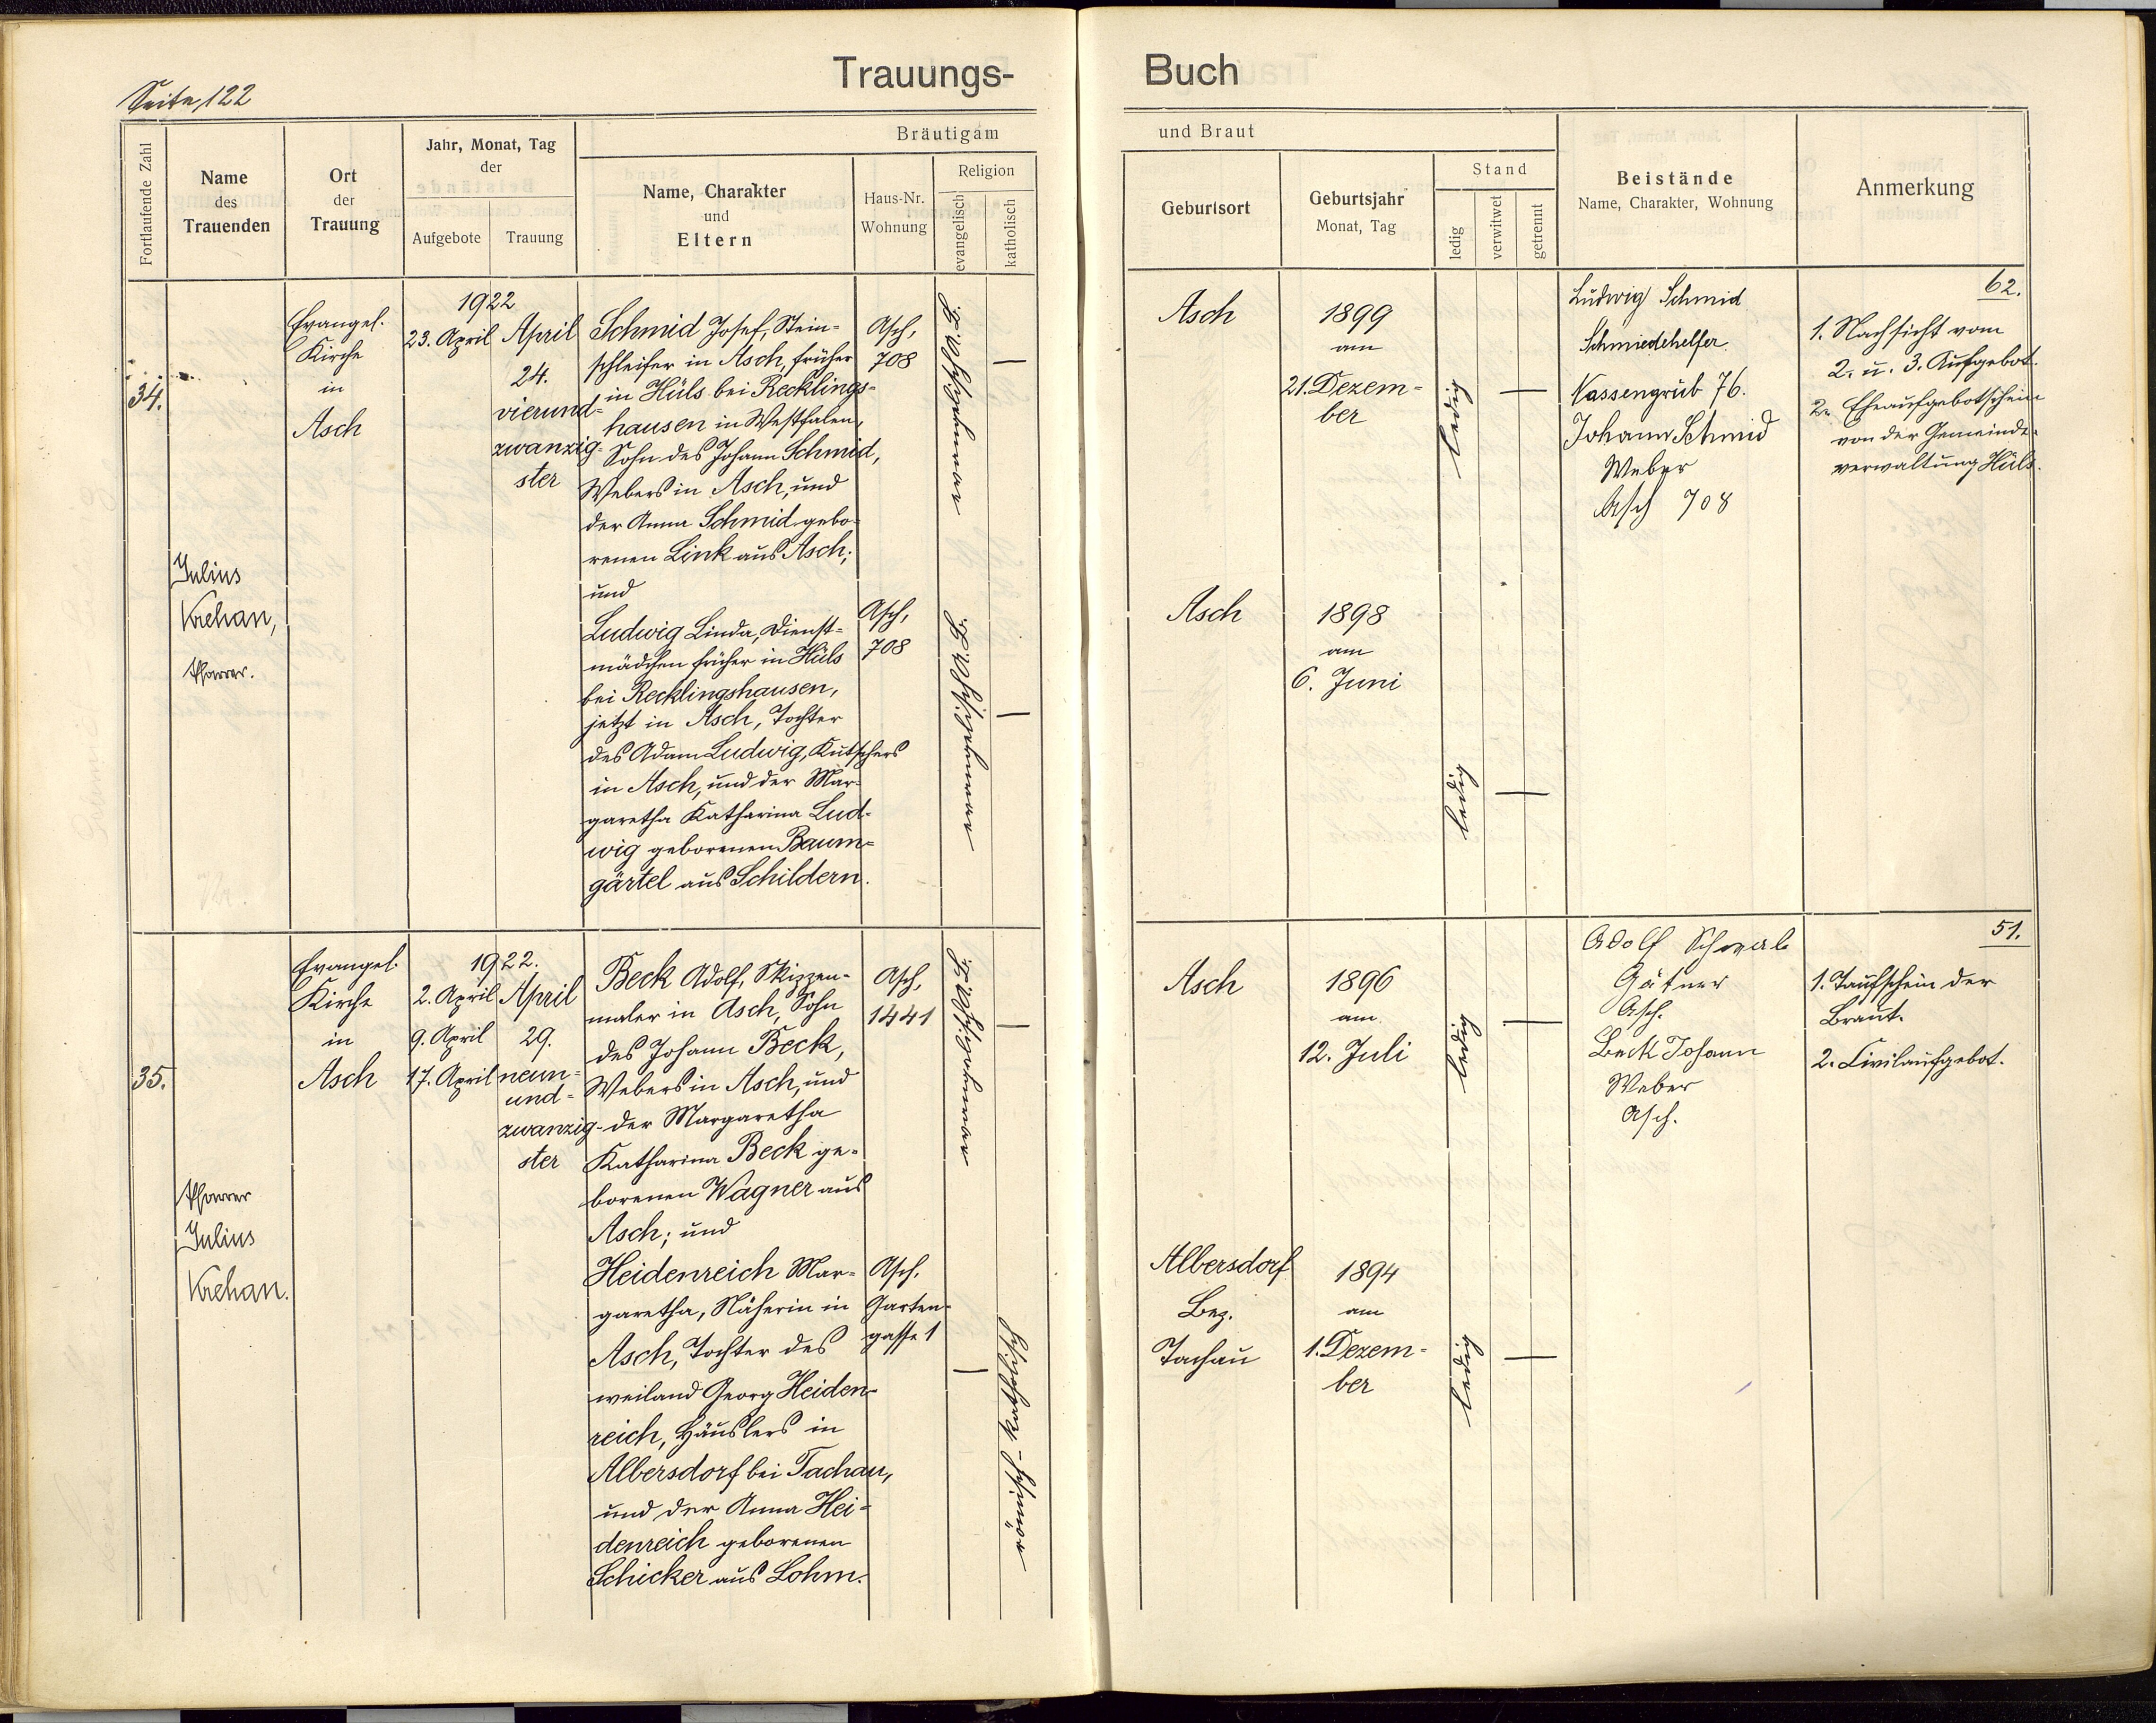 Seite 122
Trauungs-
Buch
Fortlaufende Zahl
Name
des
Trauenden
Ort
der
Trauung
Jahr, Monat, Tag
der
Aufgebote
Trauung
Bräutigam
Name, Charakter
und
Eltern
Haus-Nr.
Wohnung
Religion
evangelisch
katholisch
und Braut
Geburtsort
Geburtsjahr
Monat, Tag
Stand
ledig
verwitwet
getrennt
Beistände
Name, Charakter, Wohnung
Anmerkung
34.
Julius
Krehan,
Pfarrer.
Evangel.
Kirche
in
Asch
1922
23. April
April
24.
vierund-
zwanzig-
ster
Schmid Josef, Stein-
schleifer in Asch, früher
in Hüls bei Recklings-
hausen in Westfalen,
Sohn des Johann Schmid,
Webers in Asch, und
der Anna Schmid gebo-
renen Link aus Asch;
und
Ludwig Linda, Dienst-
mädchen früher in Hüls
bei Recklingshausen,
jetzt in Asch, Tochter
des Adam Ludwig, Kutschers
in Asch, und der Mar-
garetha Katharina Lud-
wig geborenen Baum-
gärtel aus Schildern.
Asch,
708
Asch,
708
Asch
1899
am
21. Dezem-
ber
ledig
Asch
1898
am
6. Juni
ledig
Ludwig Schmid
Schmiedehelfer
Nassengrub 76.
Johann Schmid
Weber
Asch 708
62.
1. Nachsicht vom
2. u. 3. Aufgebot.
2. Eheaufgebotschein
von der Gemeinde-
verwaltung Hüls.
35.
Pfarrer
Julius
Krehan.
Evangel.
Kirche
in
Asch
1922.
2. April
9. April
17. April
April
29.
neun-
und-
zwanzig-
ster
Beck Adolf, Skizzen-
maler in Asch, Sohn
des Johann Beck,
Webers in Asch, und
der Margaretha
Katharina Beck ge-
borenen Wagner aus
Asch; und
Heidenreich Mar-
garetha, Näherin in
Asch, Tochter des
weiland Georg Heiden-
reich, Häuslers in
Albersdorf bei Tachau,
und der Anna Hei-
denreich geborenen
Schicker aus Lohm.
Asch,
1441
Asch.
Garten-
gasse 1
römisch-katholisch
Asch
1896
am
12. Juli
ledig
Albersdorf
Bez.
Tachau
1894
am
1. Dezem-
ber
ledig
Adolf
Gätner
Asch.
Beck Johann
Weber
Asch.
51.
1. Taufschein der
Braut.
2. Civilaufgebot.